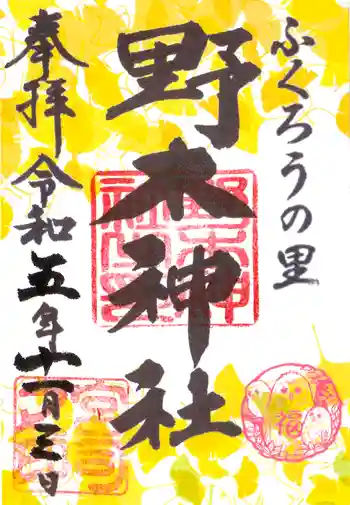 ふくろうの里
野木神社
奉拝
令和五年十一月三日
福